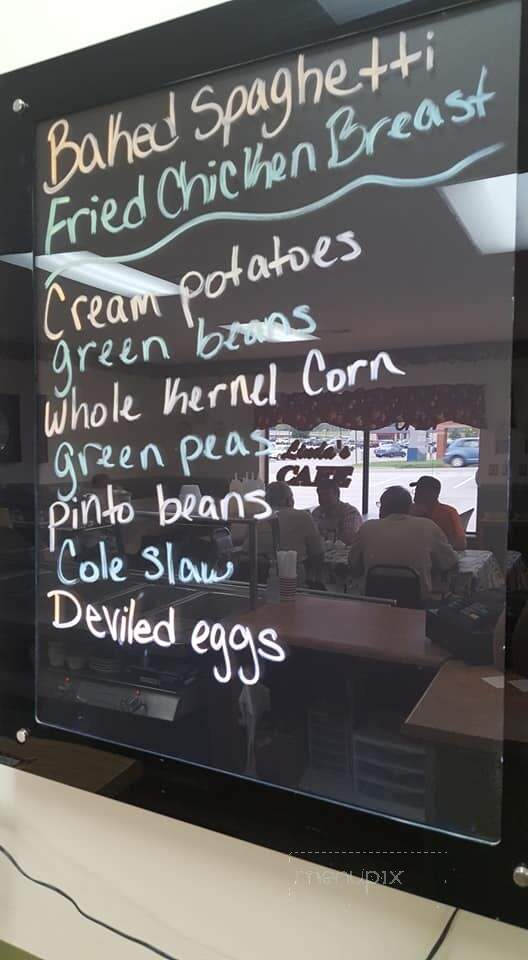 Baked Spaghetti
Fried Chicken Breast
Cream potatoes
green beans
Whole Kernel Corn
green peas
pinto beans
Cole slaw
Deviled eggs
Linda's
CAFE
menupix